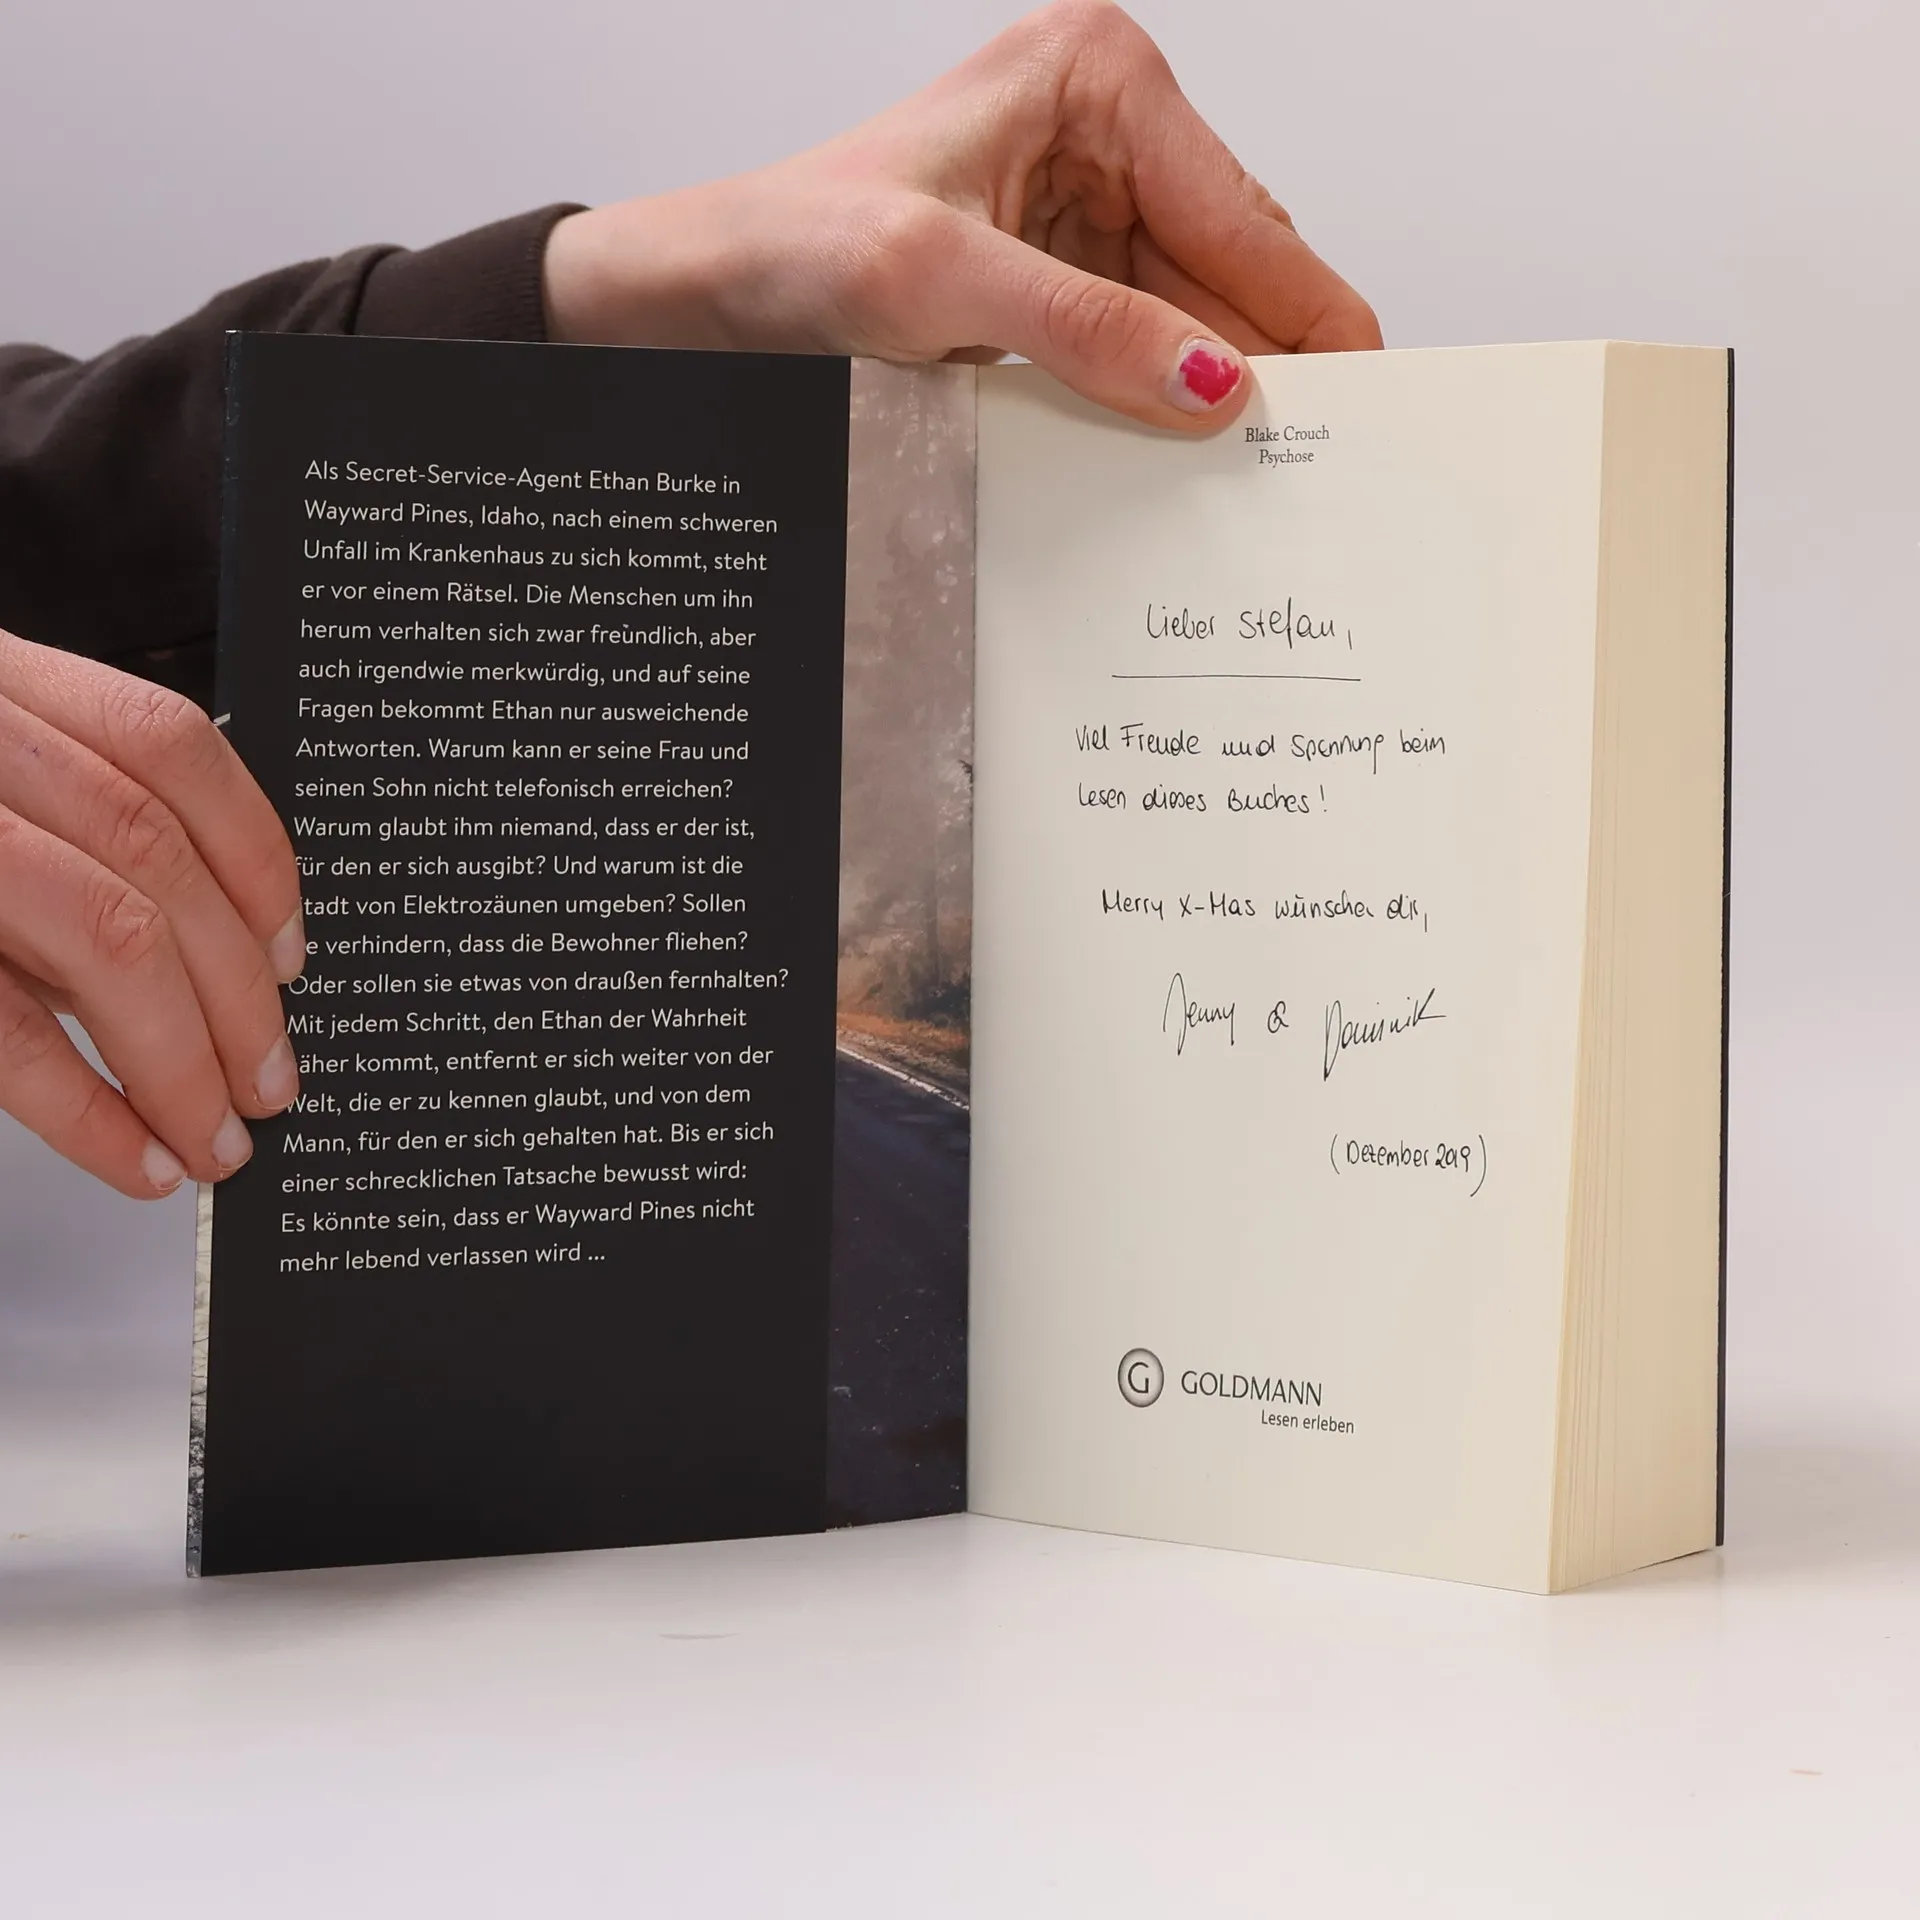 Als Secret-Service-Agent Ethan Burke in
Wayward Pines, Idaho, nach einem schweren
Unfall im Krankenhaus zu sich kommt, steht
er vor einem Rätsel. Die Menschen um ihn
herum verhalten sich zwar freundlich, aber
auch irgendwie merkwürdig, und auf seine
Fragen bekommt Ethan nur ausweichende
Antworten. Warum kann er seine Frau und
seinen Sohn nicht telefonisch erreichen?
Warum glaubt ihm niemand, dass er der ist,
für den er sich ausgibt? Und warum ist die
tadt von Elektrozäunen umgeben? Sollen
e verhindern, dass die Bewohner fliehen?
Oder sollen sie etwas von draußen fernhalten?
Mit jedem Schritt, den Ethan der Wahrheit
äher kommt, entfernt er sich weiter von der
Welt, die er zu kennen glaubt, und von dem
Mann, für den er sich gehalten hat. Bis er sich
einer schrecklichen Tatsache bewusst wird:
Es könnte sein, dass er Wayward Pines nicht
mehr lebend verlassen wird ...
Blake Crouch
Psychose
Lieber Stefan,
Viel Freude und Spannung beim
Lesen dieses Buches!
Merry X-Mas wünschen dir,
Jenny & Dominik
(Dezember 2019)
G GOLDMANN
Lesen erleben